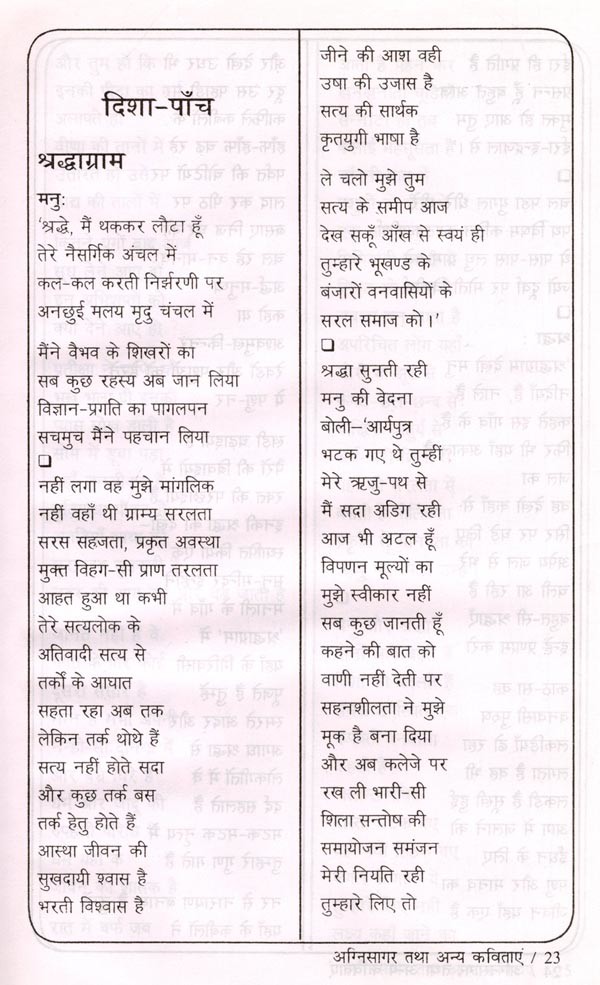 दिशा-पाँच
श्रद्धाग्राम
मनु:
'श्रद्धे, मैं थककर लौटा हूँ
तेरे नैसर्गिक अंचल में
कल-कल करती निर्झरणी पर
अनछुई मलय मृदु चंचल में
मैंने वैभव के शिखरों का
सब कुछ रहस्य अब जान लिया
विज्ञान-प्रगति का पागलपन
सचमुच मैंने पहचान लिया
❑
नहीं लगा वह मुझे मांगलिक
नहीं वहाँ थी ग्राम्य सरलता
सरस सहजता, प्रकृत अवस्था
मुक्त विहंग-सी प्राण तरलता
आहत हुआ था कभी
तेरे सत्यलोक के
अतिवादी सत्य से
तर्कों के आघात
सहता रहा अब तक
लेकिन तर्क थोथे हैं
सत्य नहीं होते सदा
और कुछ तर्क बस
तर्क हेतु होते हैं
आस्था जीवन की
सुखदायी श्वास है
भरती विश्वास है
जीने की आश वही
उषा की उजास है
सत्य की सार्थक
कृतयुगी भाषा है
ले चलो मुझे तुम
सत्य के समीप आज
देख सकूँ आँख से स्वयं ही
तुम्हारे भूखण्ड के
बंजारों वनवासियों के
सरल समाज को।'
❑
श्रद्धा सुनती रही
मनु की वेदना
बोली-'आर्यपुत्र
भटक गए थे तुम्हीं
मेरे ऋजु-पथ से
मैं सदा अडिग रही
आज भी अटल हूँ
विपणन मूल्यों का
मुझे स्वीकार नहीं
सब कुछ जानती हूँ
कहने की बात को
वाणी नहीं देती पर
सहनशीलता ने मुझे
मूक है बना दिया
और अब कलेजे पर
रख ली भारी-सी
शिला सन्तोष की
समायोजन समंजन
मेरी नियति रही
तुम्हारे लिए तो
अग्निसागर तथा अन्य कविताएं / 23